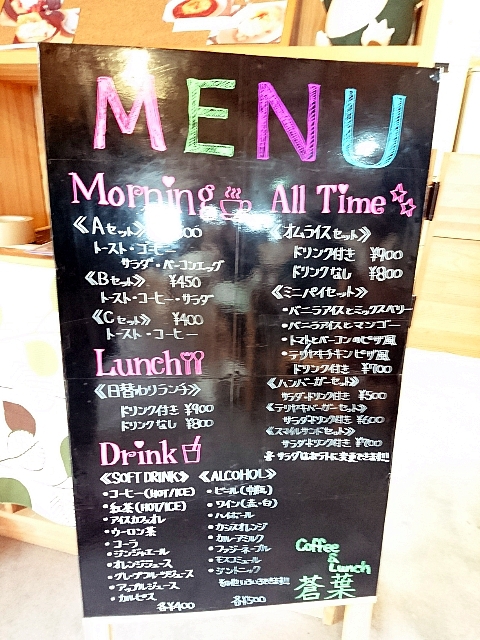 MENU
Morning
《Aセット》 00
トースト・コーヒー
サラダ・ベーコンエッグ
《Bセット》 ¥450
トースト・コーヒー・サラダ
《Cセット》 ¥400
トースト・コーヒー
Lunch
《日替わりランチ》
ドリンク付き ¥900
ドリンクなし ¥800
Drink
《SOFT DRINK》
・コーヒー(HOT/ICE)
・紅茶(HOT/ICE)
・アイスカフェオレ
・ウーロン茶
・コーラ
・ジンジャエール
・オレンジジュース
・グレープフルーツジュース
・アップルジュース
・カルピス
各¥400
《ALCOHOL》
・ビール(中瓶)
・ワイン(赤・白)
・ハイボール
・カシスオレンジ
・カルーアミルク
・ファジーネーブル
・モスコミュール
・ジントニック
その他いろいろできます!!!
各¥500
All Time
《オムライスセット》
ドリンク付き ¥900
ドリンクなし ¥800
《ミニパイセット》
・バニラアイスとミックスベリー
・バニラアイスとマンゴー
・トマトとベーコンのピザ風
・テリヤキチキンピザ風
ドリンク付き ¥700
《ハンバーガーセット》
サラダ・ドリンク付き ¥500
《テリヤキバーガーセット》
サラダ・ドリンク付き ¥600
《スマイルサンドセット》
サラダ・ドリンク付き ¥700
サラダはポテトに変更できます!!
Coffee
&
Lunch
蒼葉